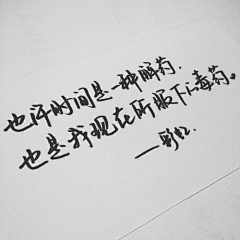 也许时间是一种解药.
也是我现在所服下的毒药。
——彩虹.